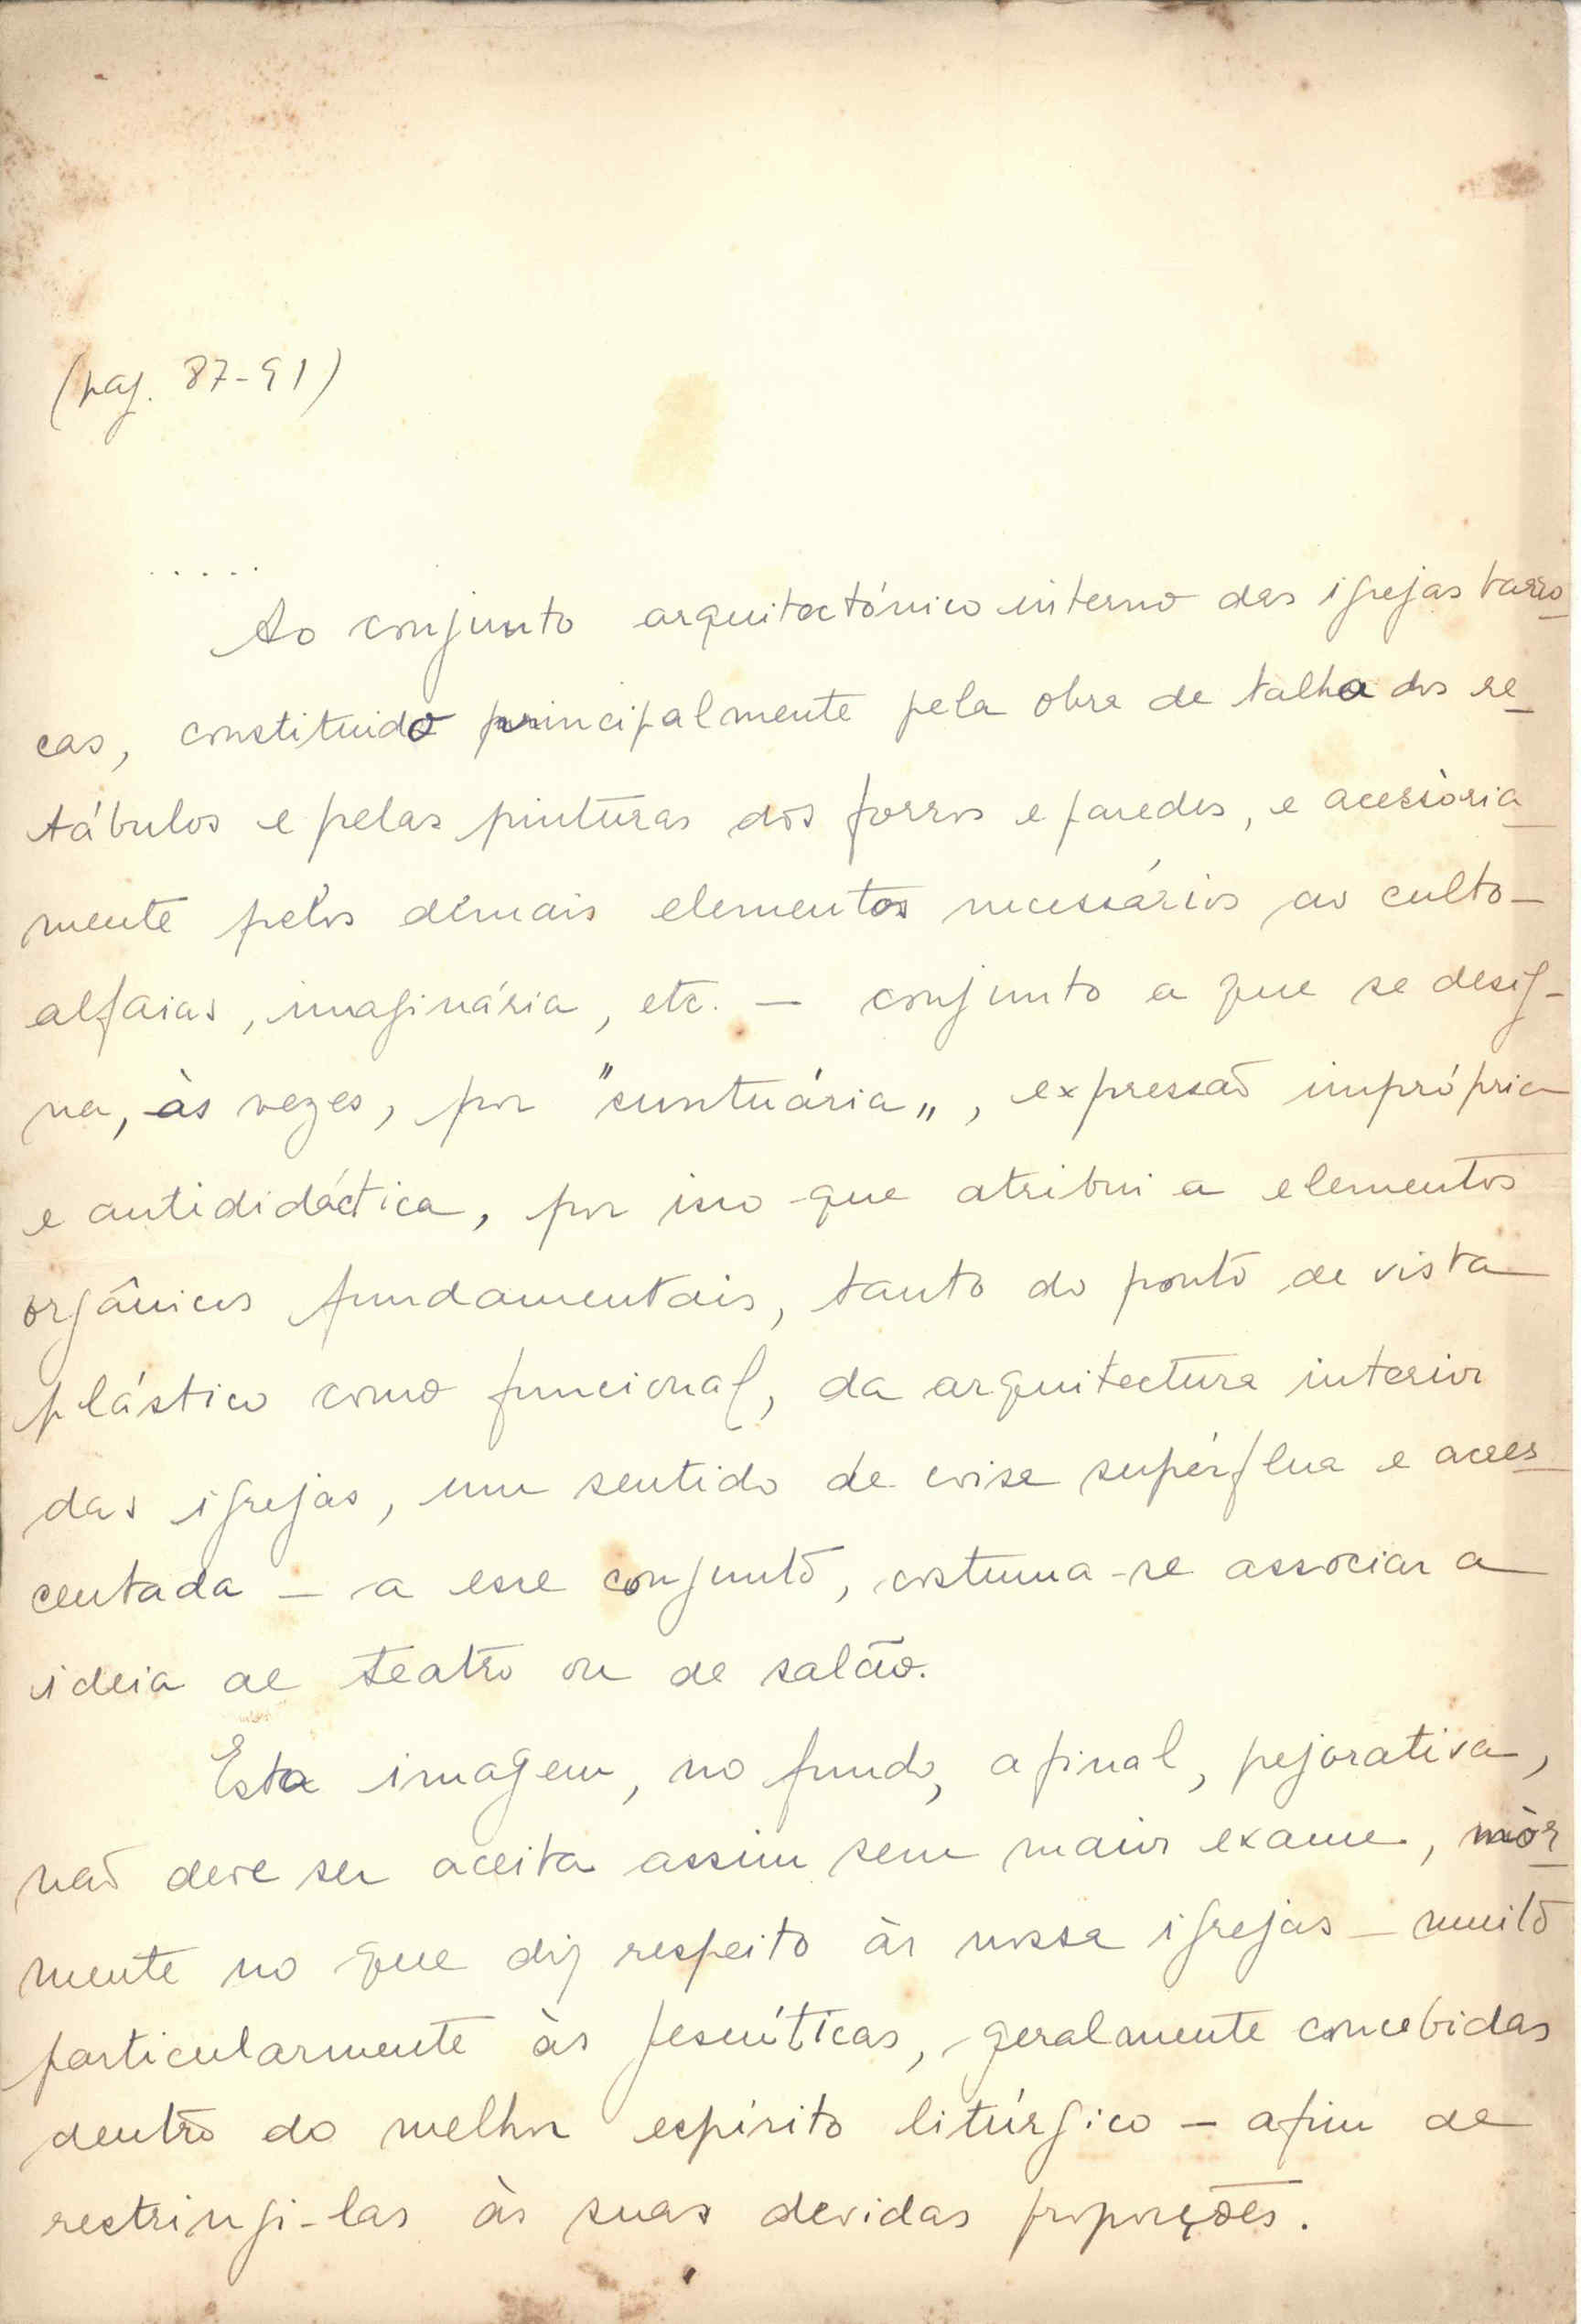 (pag. 87-91)
.....
Ao conjunto arquitectónico interno das igrejas barro
cas, constituido principalmente pela obra de talha dos re
tábulos e pelas pinturas dos forros e paredes, e acessòria
mente pelos demais elementos necessários ao culto –
alfaias, imaginária, etc. – conjunto a que se desig-
na, às vezes, por "suntuária„, expressão imprópria
e antididáctica, por isso que atribui a elementos
orgânicos fundamentais, tanto do ponto de vista
plástico como funcional, da arquitectura interior
das igrejas, um sentido de coisa supérflua e acres
centada – a esse conjunto, costuma-se associar a
ideia de teatro ou de salão.
Esta imagem, no fundo, afinal, pejorativa,
não deve ser aceita assim sem maior exame, mòr
mente no que diz respeito às nossa igrejas – muito
particularmente às jesuíticas, geralmente concebidas
dentro do melhor espírito litúrgico – afim de
restringi-las às suas devidas proporções.